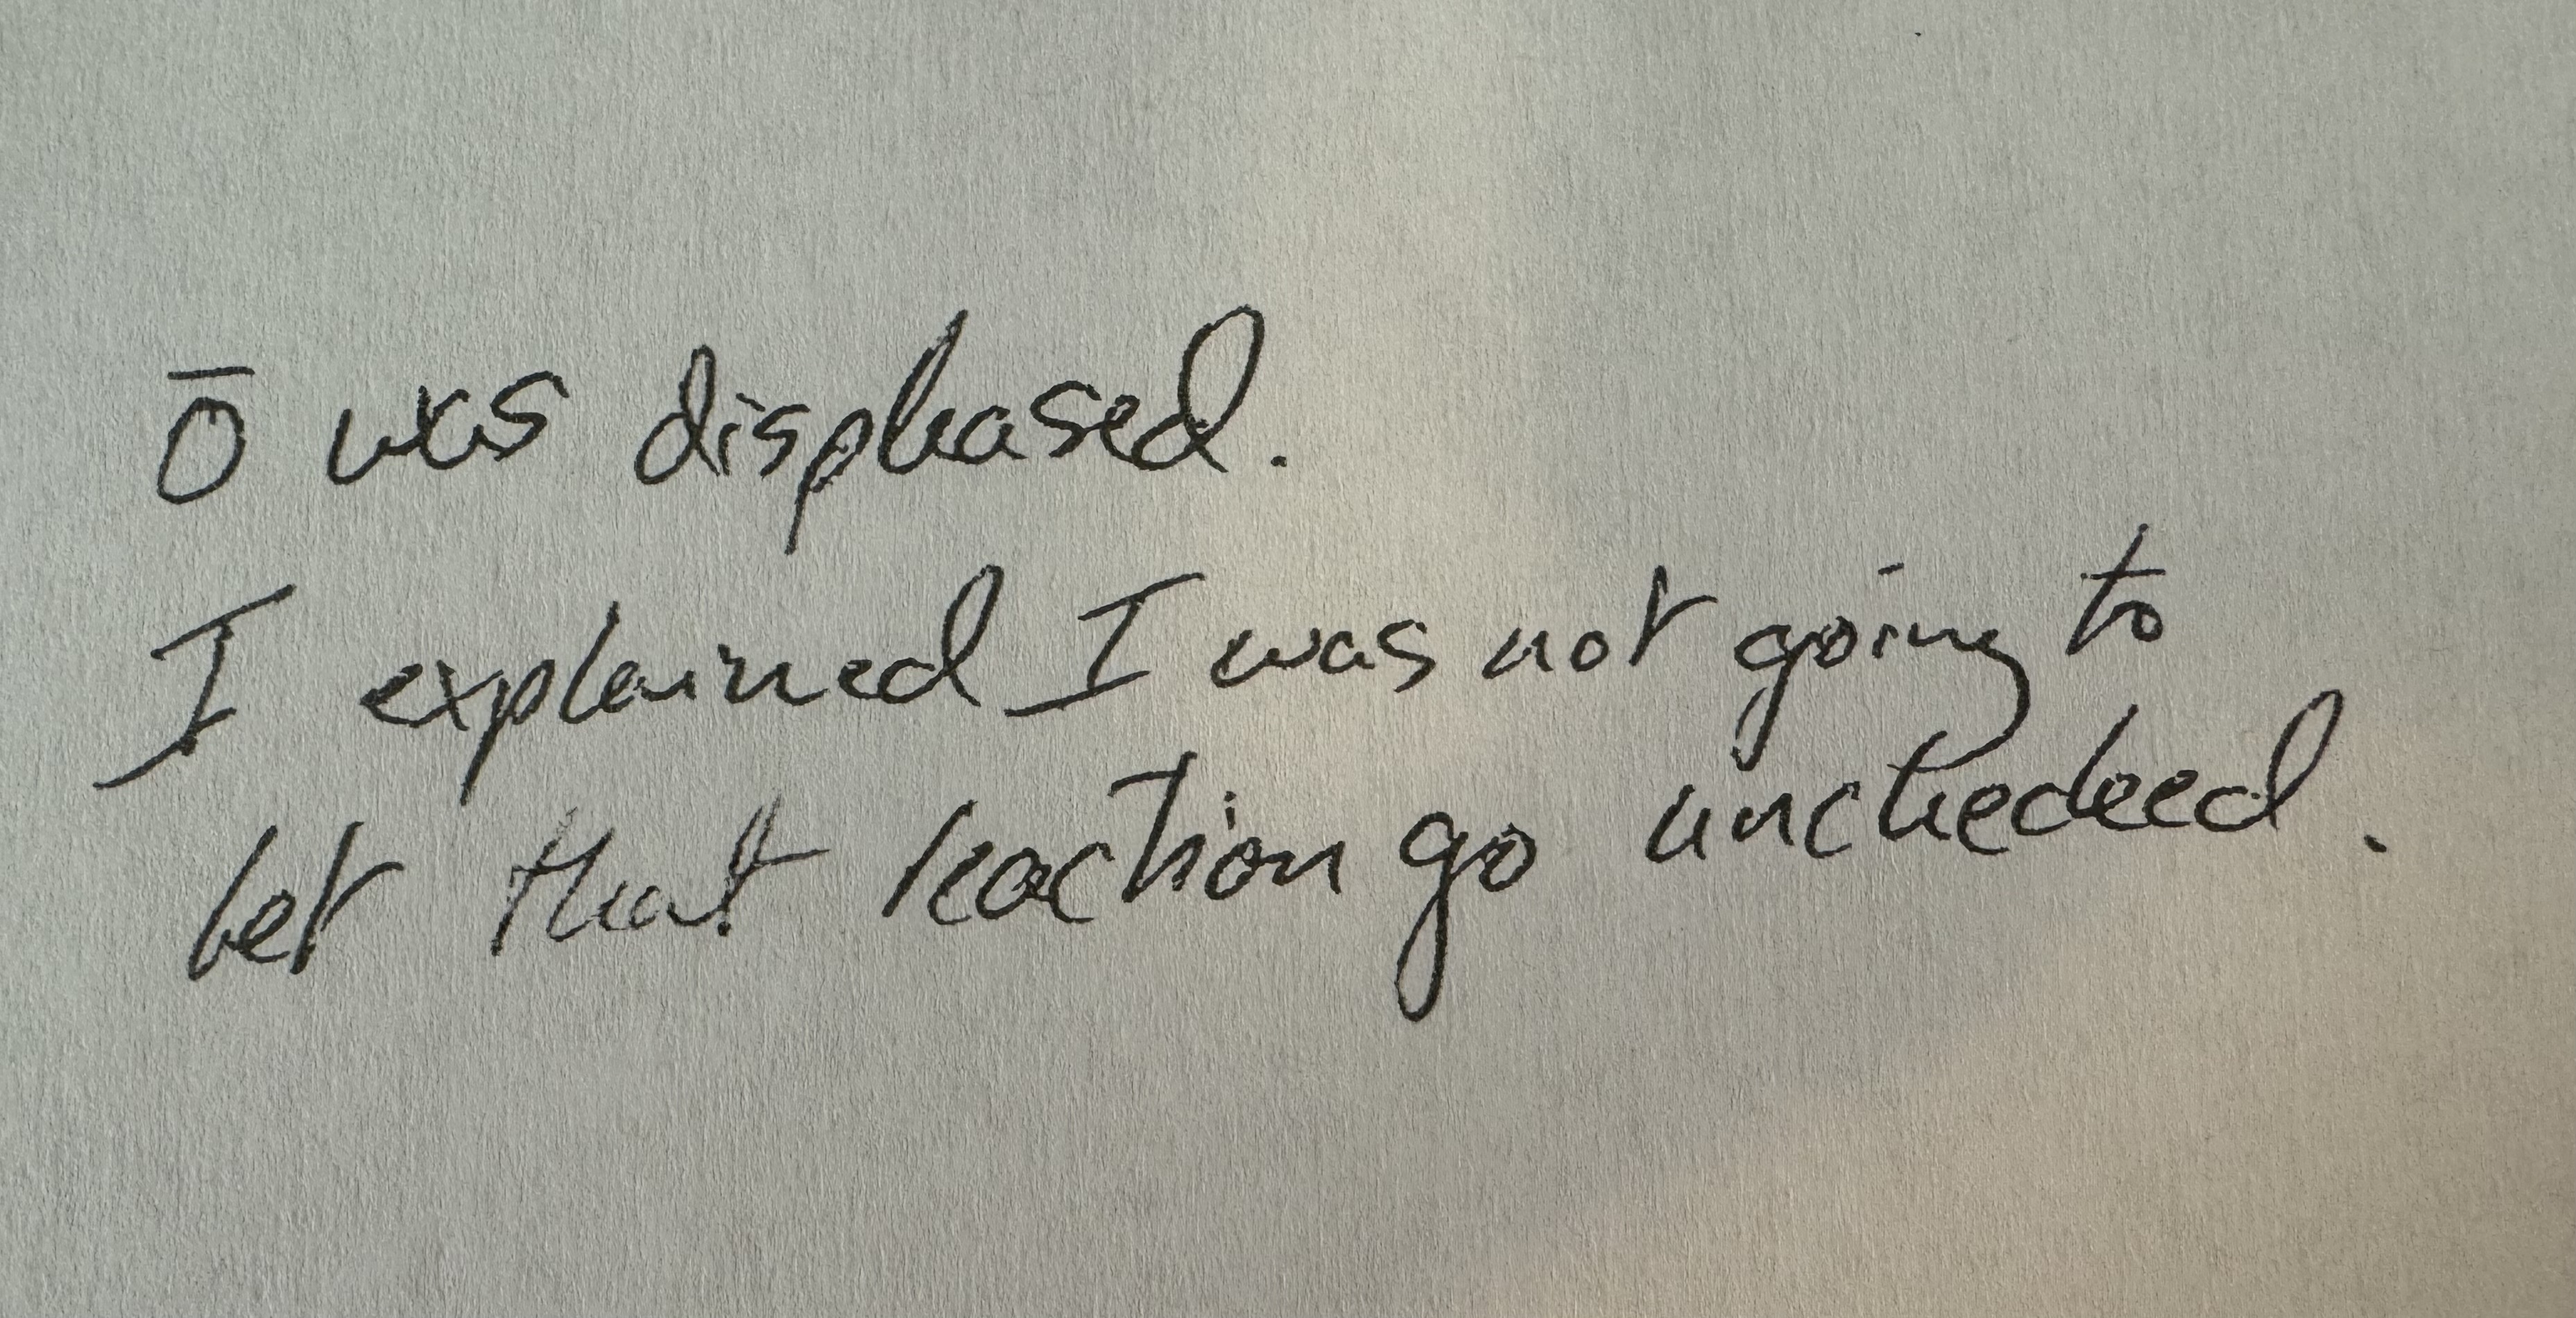 Ō was displeased.
I explained I was not going to
let that reaction go unchecked.